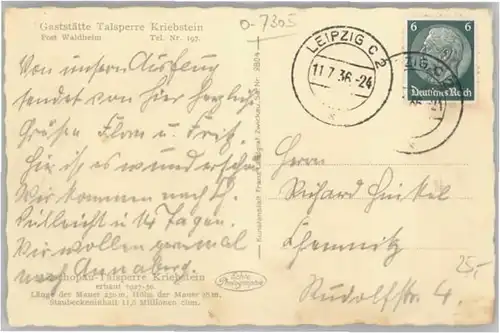 o-7305
Gaststätte Talsperre Kriebstein
Post Waldheim Tel. Nr. 197.
Von unserm Ausflug
sendet von hier herzliche
Grüße Flora u. Fritz.
Hier ist es wunderschön
Wir kommen nach
Vielleicht in 14 Tagen.
Wir wollen nochmal
nach Annaberg.
Zschopau-Talsperre Kriebstein
erbaut 1927-30.
Länge der Mauer 230 m, Höhe der Mauer 28 m.
Staubeckeninhalt 11,6 Millionen cbm.
Echte Photographie
Kunstanstalt
LEIPZIG C 2
11.7.36-24
6 6
Deutsches Reich
ZIG C 2
Herrn
Richard Henkel
Chemnitz
Rudolfstr. 4.
25,-